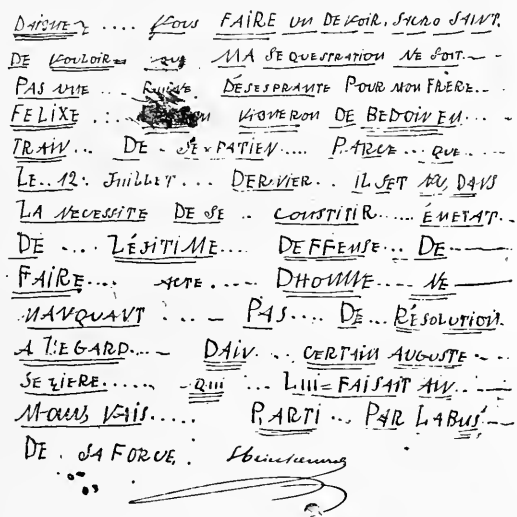 DAIGNEZ .... VOUS FAIRE UN DEVOIR. SACRO SAINT.
DE VOULOIR= QUE MA SEQUESTRATION NE SOIT.--
PAS UNE .. RUINE. DESESPRANTE POUR MON FRÈRE..
FELIXE .:. VIGNERON DE BEDOIN EN...
TRAIN... DE - SE=PATIEN.... PARCE .. QUE....
LE.. 12: JUILLET... DERNIER.. IL SET DANS
LA NECESSITE DE SE .. CONSTITIR..... ÉNETAT--
DE .... LÉSITIME.... DEFFENSE... DE----
FAIRE.... ACTE ..... DHOMME.... NE---
MANQUANT :..- PAS.... DE... RÉSOLUTION.
A L'EGARD...- DAIN... CERTAIN AUGUSTE-..
SEZIERE..... - QUI ... LUI=FAISAIT AN..--
MOUVS VAIS..... PARTI ... PAR LABUS'--
DE . SA FORCE. :